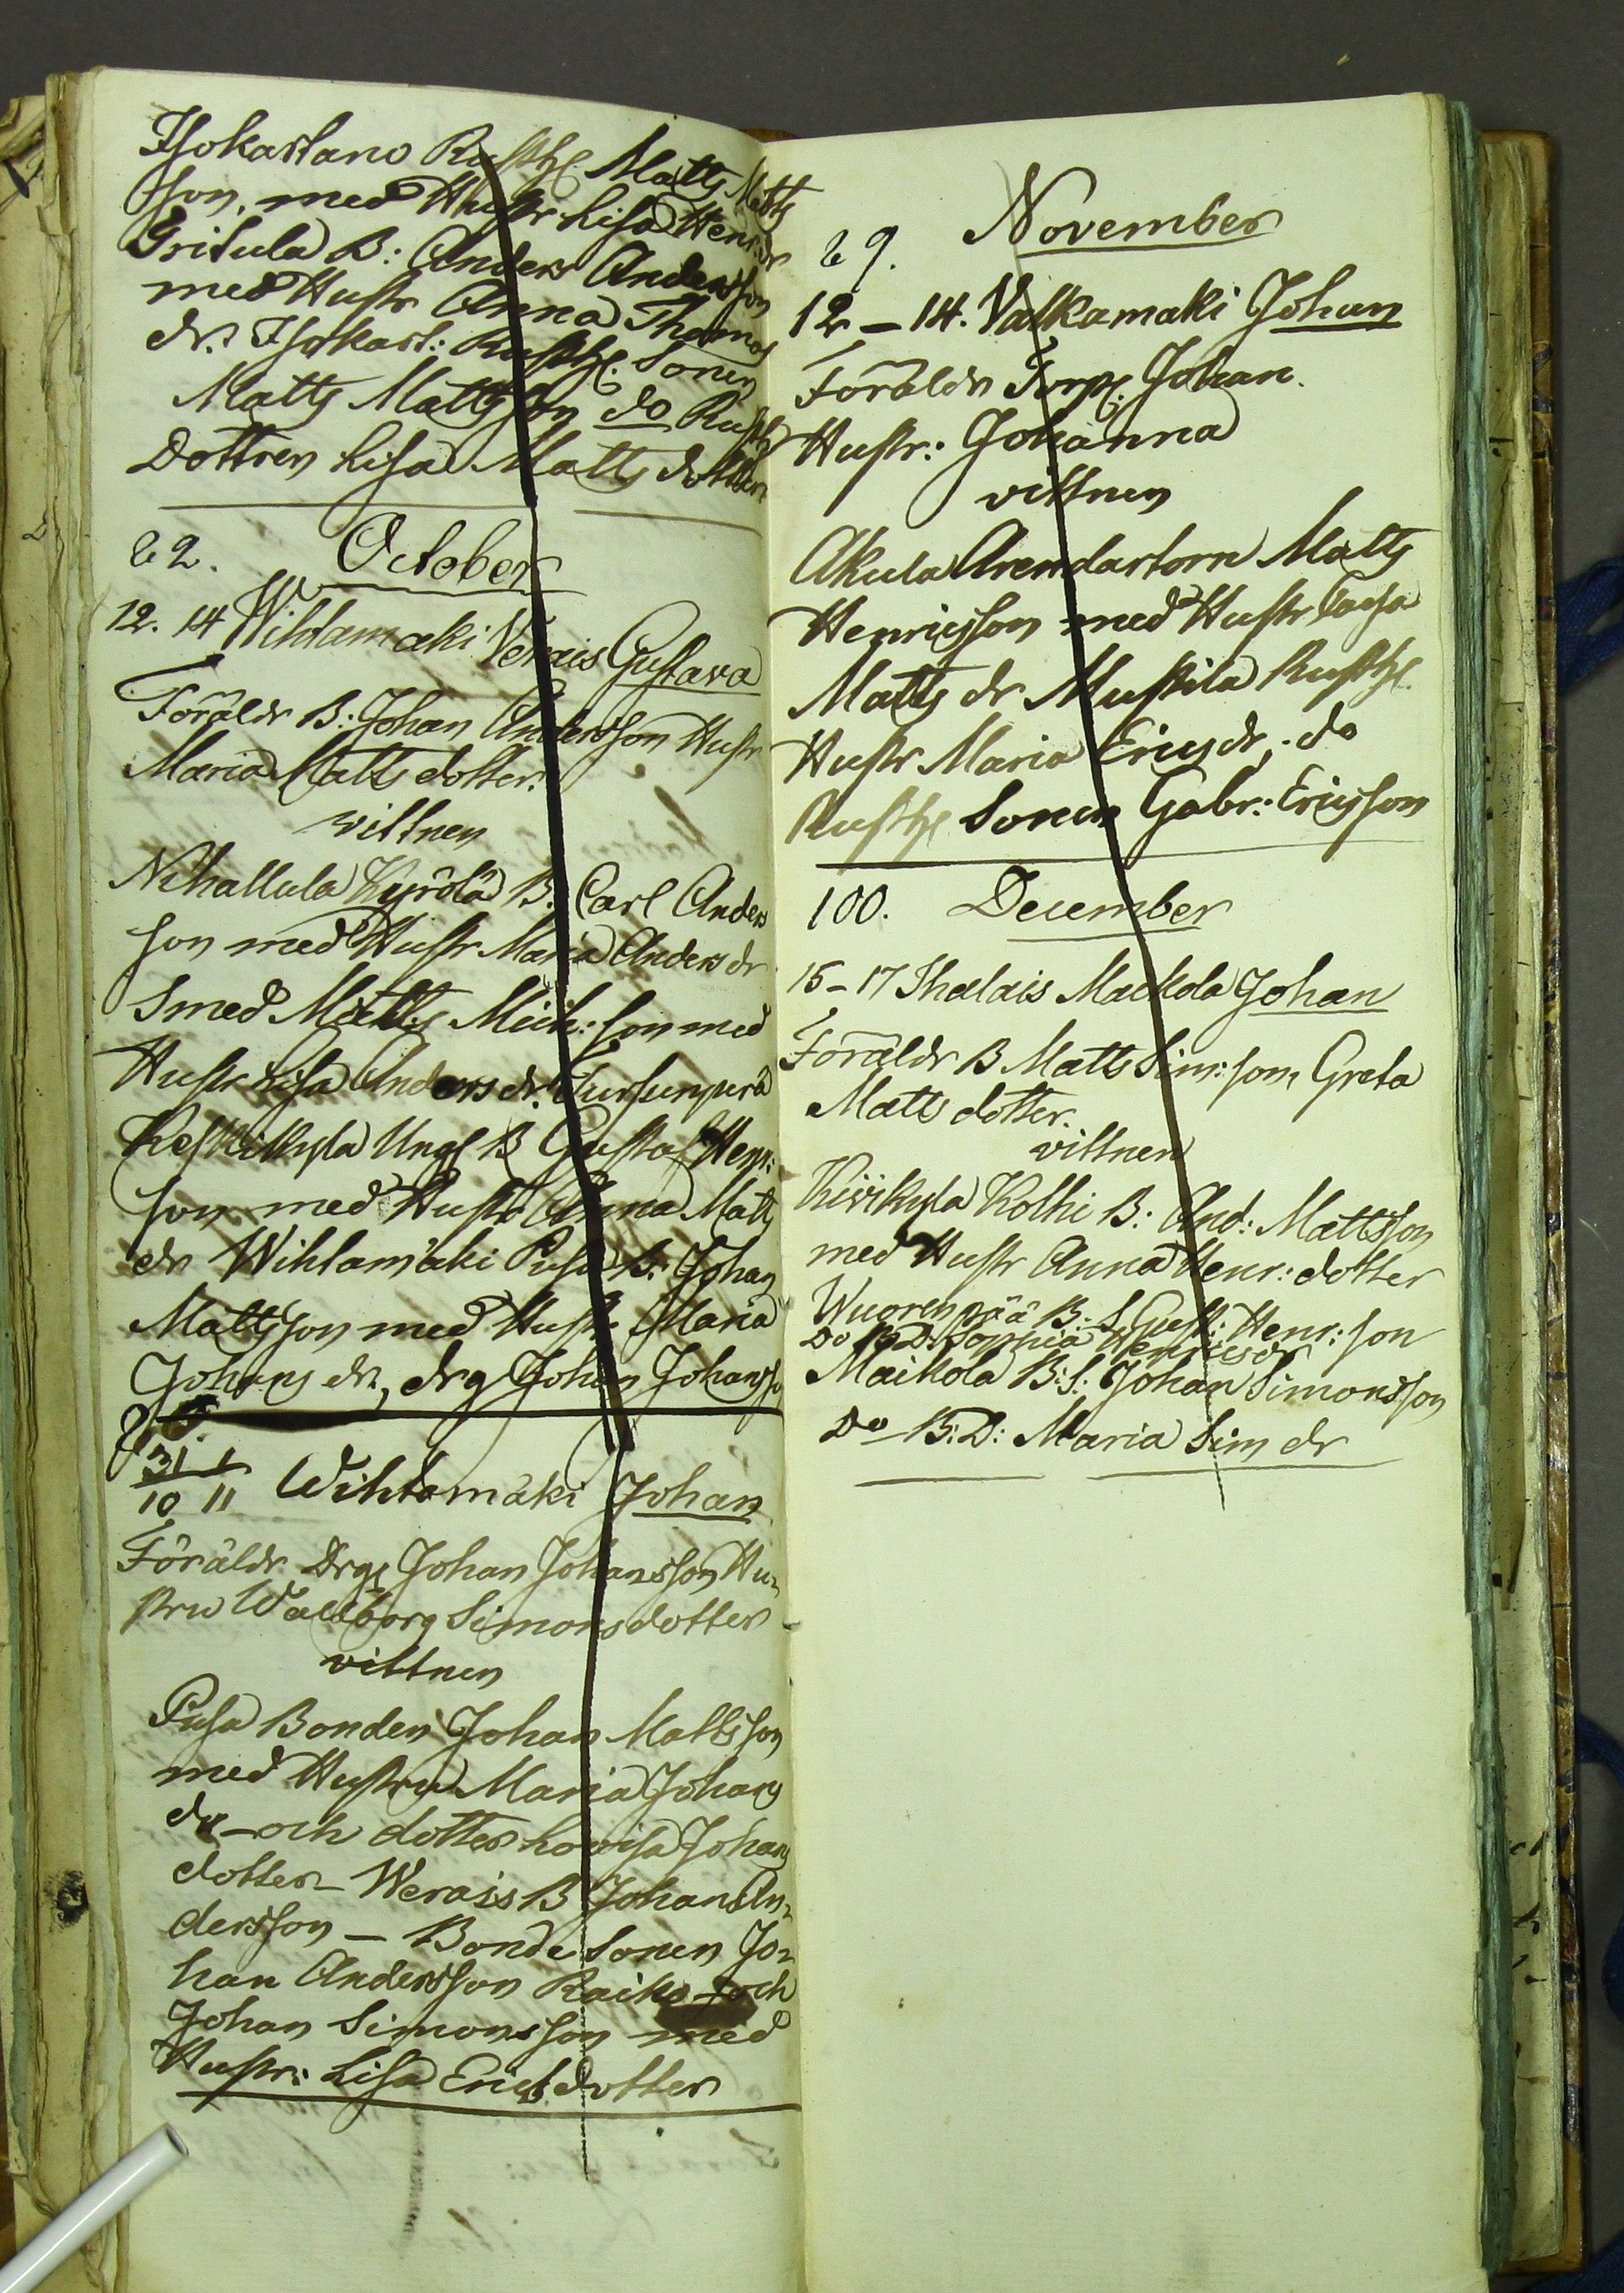 Isokartano Rusth. Matts Matts
son, med Hustr Lisa Henr:dr
Gritula B: Anders Andersson
med Hustr Anna Thomas
dr. Isokart: Rusth. Sonen
Matts Mattsson do Rusth
Dottren Lisa Matts dotter
October
12. 14 Wihlamaki Verais Gustava
Föräldr B: Johan Andersson Hustr
Maria Matts dotter.
vittnen
Nihattula Kyrölä B. Carl Anders
son med Hustr Maria Anders dr
Smed Matts Mich: son med
Hustr Lisa Anders dr. Tursunperä
Keskikyla Ungl B Gustaf Henr:
son med Hustr Anna Matts
dr Wihlamäki Pusa B: Johan
Mattsson med Hustr Maria
Johans dr, drg Johan Johansso
31 1
10 11 Wihlamäki Johan
Föräldr Drg Johan Johansson Hu-
stru Wallborg Simonsdotter -
vittnen
Pusa Bonden Johan Mattsson
med Hustru Maria Johans
dr - och dotter Lovisa Johans
dotter - Werais B Johan An-
dersson - Bonde Sonen Jo-
han Andersson Raiko - och
Johan Simonsson med
Hustr: Lisa Ericsdotter
November
12 - 14. Valkamaki Johan
Föräldr Torp. Johan.
Hustr: Johanna
vittnen
Akula Arendartorn Matts
Henricsson med Hustr Caisa
Matts dr Mustila Rusth.
Hustr Maria Erics dr, do
Rusth Sonen Gabr: Ericsson
100. December
15 - 17 Ihalais Maikola Johan
Föräldr B Matts Sim: son, Greta
Matts dotter.
vittnen
Kivikyla Kolhi B: And: Mattsson
med Hustr Anna Henr: dotter
Wuorenpää B: S Gust: Henr: son
Do B D: Sophia Henrics dr
Maikola B: S: Johan Simonsson
Do B: D: Maria Sim dr